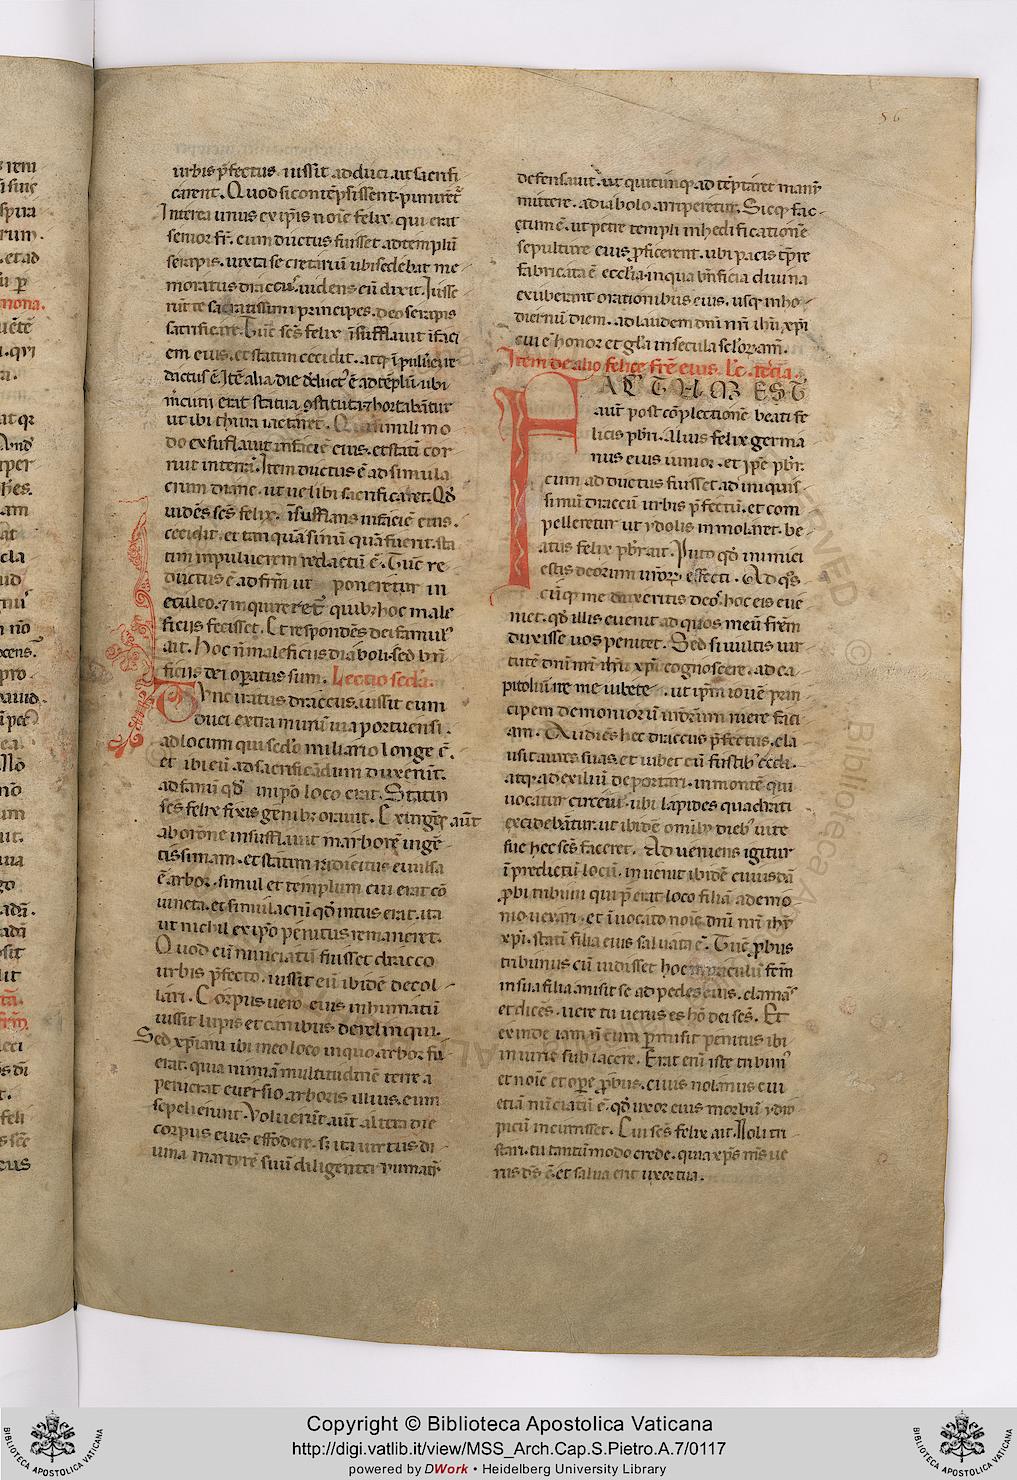 urbis p̄fectus iussit adduci. ut sacrifi
carent. Quod si contēpsissent. puniret᷑
Interea unus ex ip̄is noīe felix. qui erat
senior fr̄. cum ductus fuisset ad templū
serapis. iuxta se cretariū ubi sedebat me
moratus draccuˢ. uidens eū dixit. Iusse
rūt te sacratissimi principes. deo serapis
sacrificare. Tūc sc̄s felix īsufflauit ī faci
em eius. et statim cecidit. atq; ī puluerē re
dactus ē. Itē alia die deductˀ ē ad tēplū ubi
mcurii erat statua ↄstituta ⁊ hortabāt᷑
ut ibi thura iactaret. Qui simili mo
do exsufflauit in facie eius. et statī cor
ruit in terrā. Itē ductus ē ad simula
crum diane. ut uel ibi sacrificaret. Qd̄
uidēs sc̄s felix. īsufflans in faciē eius.
cecidit. et tanquā fumū quā fuerit. sta
tim in puluerem redactū ē. Tūc re
ductus ē ad fr̄m ut poneretur in
eculeo. ⁊ inquireret᷑ quib; hoc male
ficiis fecisset. Et respondēs dei famulˀ
ait. Hoc n̄ maleficiis diaboli. sed bn̄
ficiis dei op̄atus sum. Lectio sc̄da.
Tunc iratus draccus. iussit eum
duci extra murū uia portuensi.
ad locum qui sedo miliario longe ē.
et ibi eū ad sacrificādum duxerūt.
ad fanū qd̄ in ip̄o loco erat. Statim
sc̄s felix fixis genib; orauit. Exinger̄ aūt
ab or̄one insufflauit in arborē inge
tissimam. et statim radicitus euulsa
ē arbor. simul et templum cui erat cō
iuncta. et simulacrū qd̄ intus erat. ita
ut nichil ex ip̄o penitus remaneret.
Quod cū nunciatū fuisset dracco
urbis p̄fecto. iussit eū ibidē decol
lari. Corpus uero eius inhumatū
iussit lupis et canibus derelinqui.
Sed xp̄iani ibi in eo loco in quo arbor fu
erat. quia nimiā multitudinē terre a
peruerat euersio arboris illius. eum
sepelierunt. Voluerūt aūt altera die
corpus eius effodere. s; ita uirtus di
uina martyrē suū diligenter humatū
56
defensauit. ut quicunq; ad tēptaret manū
mittere. a diabolo arriperetur. Sicq; fac
ctum ē. ut petre templi in hedificationē
sepulture eius p̄ficerent. ubi pacis tp̄re
fabricata ē eccl̄ia. in qua bn̄ficia diuina
exuberant orationibus eius. usq; in ho
diernū diem. ad laudem dn̄i nr̄i ihū xp̄i
cui ē honor et gl̄a in secula sc̄lor; am̄.
Item de alio felice fr̄e eius. Lc̄. tc̄ia.
FACTUM EST
aūt post cōplectionē beati fe
licis pbr̄i. Alius felix germa
nus eius iunior. et ip̄e pbr̄.
cum ad ductus fuisset ad iniquis
simū draccū urbis p̄fectū. et com
pelleretur ut ydolis immolaret. be
atus felix pbr̄ ait. Puto qd̄ inimici
estis deorum ur̄or; effecti. Ad q̄s
cūq; me duxeritis deos. hoc eis eue
niet. qd̄ illis euenit ad quos meū fr̄em
duxisse uos penitet. Sed si uultis uir
tutē dn̄i nr̄i ihū xp̄i cognoscere. ad ca
pitoliū ire me iubete. ut ip̄m iouē prin
cipem demoniorū ur̄orum ruere faci
am. Audiēs hec draccus p̄fectus. cla
usit aures suas. et iubet eū fustib; cedi.
atq; ad exiliū deportari. in montē qui
uocatur circeiū. ubi lapides quadrati
excidebātur. ut ibidē omīb; dieb; uite
sue hec sc̄s faceret. Adueniens igitur
ī predictū locū. inuenit ibidē cuiusdā
probi tribuni qui p̄erat loco filiā a demo
nio uexari. et īuocato noīe dn̄i nr̄i ihū
xp̄i. statī filia eius saluata ē. Tūc probus
tribunus cū uidisset hoc miraculū fc̄m
in sua filia. misit se ad pedes eius. clamās
et dicēs. uere tu uerus es hō dei sc̄s. Et
exinde iam n̄ eum p̄misit penitus ibi
iniurie subiacere. Erat enī iste tribunˀ
et noīe et ope probus. cuius nolanus cui
etiā nūciatū ē. qd̄ uxor eius morbū ydro
picū incurrisset. Cui sc̄s felix ait. Noli tri
stari. tu tantūmodo crede. quia xp̄s mˢ ue
rus ds̄ ē. et salua erit uxor tua.
Copyright © Biblioteca Apostolica Vaticana
http://digi.vatlib.it/view/MSS_Arch.Cap.S.Pietro.A.7/0117
powered by DWork • Heidelberg University Library